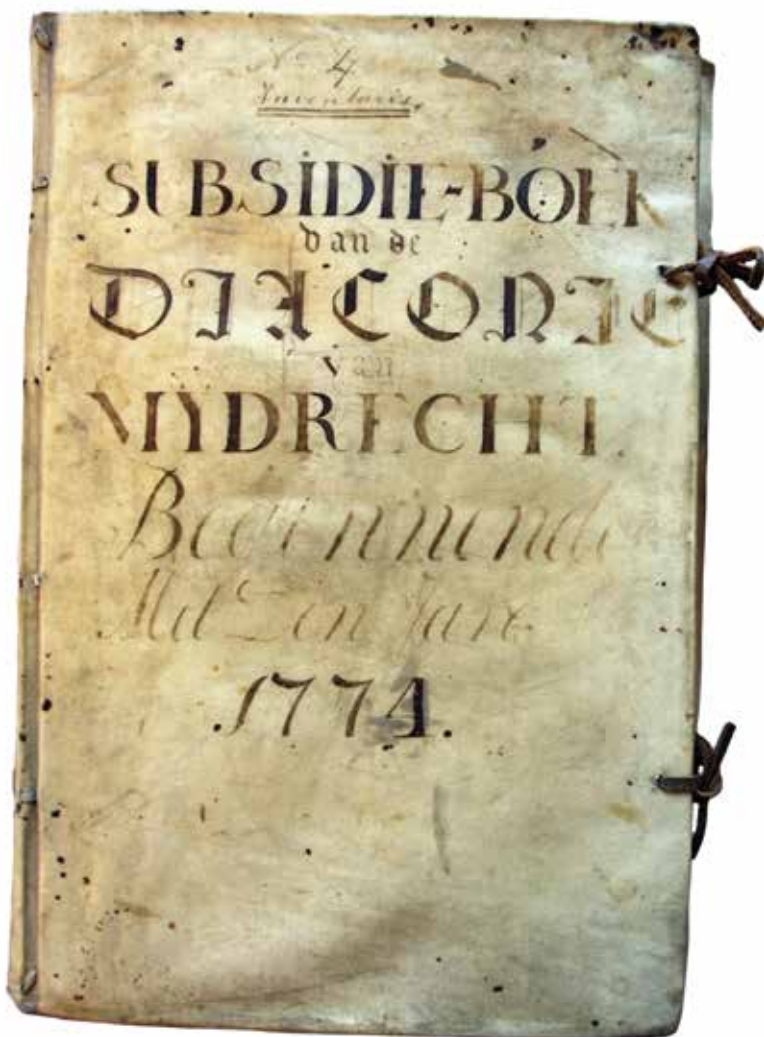 No 4
Inventaris.
SUBSIDIE-BOEK
van de
DIACONIE
van
MYDRECHT.
Beginnende
Met Den Jare
1774.